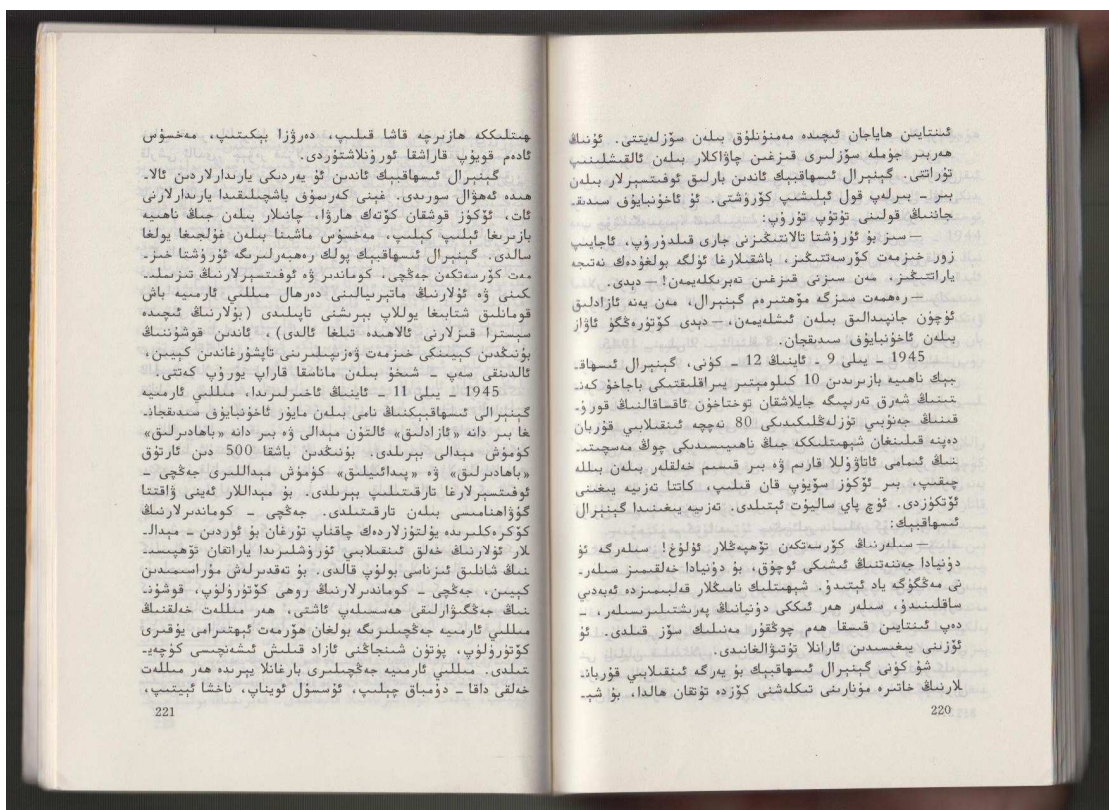 ئىنتايىن ھاياجان ئىچىدە مەمنۇنلۇق بىلەن سۆزلەيتتى. ئۇنىڭ
ھەربىر جۈملە سۆزلىرى قىزغىن چاۋاكلار بىلەن ئالقىشلىنىپ
تۇراتتى. گېنېرال ئىسھاقبېك ئاندىن بارلىق ئوفىتسېرلار بىلەن
بىر ـ بىرلەپ قول ئېلىشىپ كۆرۈشتى. ئۇ ئاخۇنبايۇف سىدىقـ
جاننىڭ قولىنى تۇتۇپ تۇرۇپ:
— سىز بۇ ئۇرۇشتا تالانتىڭىزنى جارى قىلدۇرۇپ، ئاجايىپ
زور خىزمەت كۆرسەتتىڭىز، باشقىلارغا ئۈلگە بولغۇدەك نەتىجە
ياراتتىڭىز، مەن سىزنى قىزغىن تەبرىكلەيمەن! — دېدى.
— رەھمەت سىزگە مۆھتىرەم گېنېرال، مەن يەنە ئازادلىق
ئۈچۈن جانپىدالىق بىلەن ئىشلەيمەن، — دېدى كۆتۈرەڭگۈ ئاۋاز
بىلەن ئاخۇنبايۇف سىدىقجان.
1945 ـ يىلى 9 ـ ئاينىڭ 12 ـ كۈنى، گېنېرال ئىسھاقـ
بېك ناھىيە بازىرىدىن 10 كىلومېتىر يىراقلىقتىكى باجاخۇ كەنـ
تىنىڭ شەرق تەرىپىگە جايلاشقان توختاخۇن ئاقساقالنىڭ قورۇـ
قىنىڭ جەنۇبىي تۈزلەڭلىكىدىكى 80 نەچچە ئىنقىلابىي قۇربان
دەپنە قىلىنغان شېھىتلىككە جىڭ ناھىيىسىدىكى چوڭ مەسچىتـ
نىڭ ئىمامى ئاتاۋۇللا قارىم ۋە بىر قىسىم خەلقلەر بىلەن بىللە
چىقىپ، بىر ئۆكۈز سويۇپ قان قىلىپ، كاتتا تەزىيە يىغىنى
ئۆتكۈزدى. ئۈچ پاي ساليۇت ئېتىلدى. تەزىيە يىغىنىدا گېنېرال
ئىسھاقبېك:
— سىلەرنىڭ كۆرسەتكەن تۆھپەڭلار ئۇلۇغ! سىلەرگە ئۇ
دۇنيادا جەننەتنىڭ ئىشىكى ئوچۇق، بۇ دۇنيادا خەلقىمىز سىلەرـ
نى مەڭگۈگە ياد ئېتىدۇ. شېھىتلىك نامىڭلار قەلبىمىزدە ئەبەدىي
ساقلىنىدۇ، سىلەر ھەر ئىككى دۇنيانىڭ پەرىشتىلىرىسىلەر، ـ
دەپ ئىنتايىن قىسقا ھەم چوڭقۇر مەنىلىك سۆز قىلدى. ئۇ
ئۆزىنى يىغىسىدىن ئارانلا تۇتىۋالغانىدى.
شۇ كۈنى گېنېرال ئىسھاقبېك بۇ يەرگە ئىنقىلابىي قۇربانـ
لارنىڭ خاتىرە مۇنارىنى تىكلەشنى كۆزدە تۇتقان ھالدا، بۇ شېـ
220
ھىتلىككە ھازىرچە قاشا قىلىپ، دەرۋازا بېكىتىپ، مەخسۇس
ئادەم قويۇپ قاراشقا ئورۇنلاشتۇردى.
گېنېرال ئىسھاقبېك ئاندىن ئۇ يەردىكى يارىدارلاردىن ئالاـ
ھىدە ئەھۋال سورىدى. غېنى كەرىموف باشچىلىقىدا يارىدارلارنى
ئات، ئۆكۈز قوشقان كۆتەك ھارۋا، چانىلار بىلەن جىڭ ناھىيە
بازىرىغا ئېلىپ كېلىپ، مەخسۇس ماشىنا بىلەن غۇلجىغا يولغا
سالدى. گېنېرال ئىسھاقبېك پولك رەھبەرلىرىگە ئۇرۇشتا خىزـ
مەت كۆرسەتكەن جەڭچى، كوماندىر ۋە ئوفىتسېرلارنىڭ تىزىملىـ
كىنى ۋە ئۇلارنىڭ ماتېرىيالىنى دەرھال مىللىي ئارمىيە باش
قوماندانلىق شتابىغا يوللاپ بېرىشنى تاپىلىدى (بۇلارنىڭ ئىچىدە
سېسترا قىزلارنى ئالاھىدە تىلغا ئالدى)، ئاندىن قوشۇننىڭ
بۇنىڭدىن كېيىنكى خىزمەت ۋەزىپىلىرىنى تاپشۇرغاندىن كېيىن،
ئالدىنقى سەپ ـ شىخو بىلەن ماناسقا قاراپ يۈرۈپ كەتتى.
1945 ـ يىلى 11 ـ ئاينىڭ ئاخىرلىرىدا، مىللىي ئارمىيە
گېنېرالى ئىسھاقبېكنىڭ نامى بىلەن مايور ئاخۇنبايۇف سىدىقجانـ
غا بىر دانە «ئازادلىق» ئالتۇن مېدالى ۋە بىر دانە «باھادىرلىق»
كۈمۈش مېدالى بېرىلدى. بۇنىڭدىن باشقا 500 دىن ئارتۇق
«باھادىرلىق» ۋە «پىدائىيلىق» كۈمۈش مېداللىرى جەڭچى ـ
ئوفىتسېرلارغا تارقىتىلىپ بېرىلدى. بۇ مېداللار ئەينى ۋاقىتتا
گۇۋاھنامىسى بىلەن تارقىتىلدى. جەڭچى ـ كوماندىرلارنىڭ
كۆكرەكلىرىدە يۇلتۇزلاردەك چاقناپ تۇرغان بۇ ئوردىن ـ مېدالـ
لار ئۇلارنىڭ خەلق ئىنقىلابىي ئۇرۇشلىرىدا ياراتقان تۆھپىسىـ
نىڭ شانلىق ئىزناسى بولۇپ قالدى. بۇ تەقدىرلەش مۇراسىمىدىن
كېيىن، جەڭچى ـ كوماندىرلارنىڭ روھى كۆتۈرۈلۈپ، قوشۇنـ
نىڭ جەڭگىۋارلىقى ھەسسىلەپ ئاشتى، ھەر مىللەت خەلقنىڭ
مىللىي ئارمىيە جەڭچىلىرىگە بولغان ھۆرمەت ئېھتىرامى يۇقىرى
كۆتۈرۈلۈپ، پۈتۈن شىنجاڭنى ئازاد قىلىش ئىشەنچىسى كۈچەيـ
تىلدى. مىللىي ئارمىيە جەڭچىلىرى بارغانلا يېرىدە ھەر مىللەت
خەلقى داقا ـ دۇمباق چېلىپ، ئۇسسۇل ئويناپ، ناخشا ئېيتىپ،
221